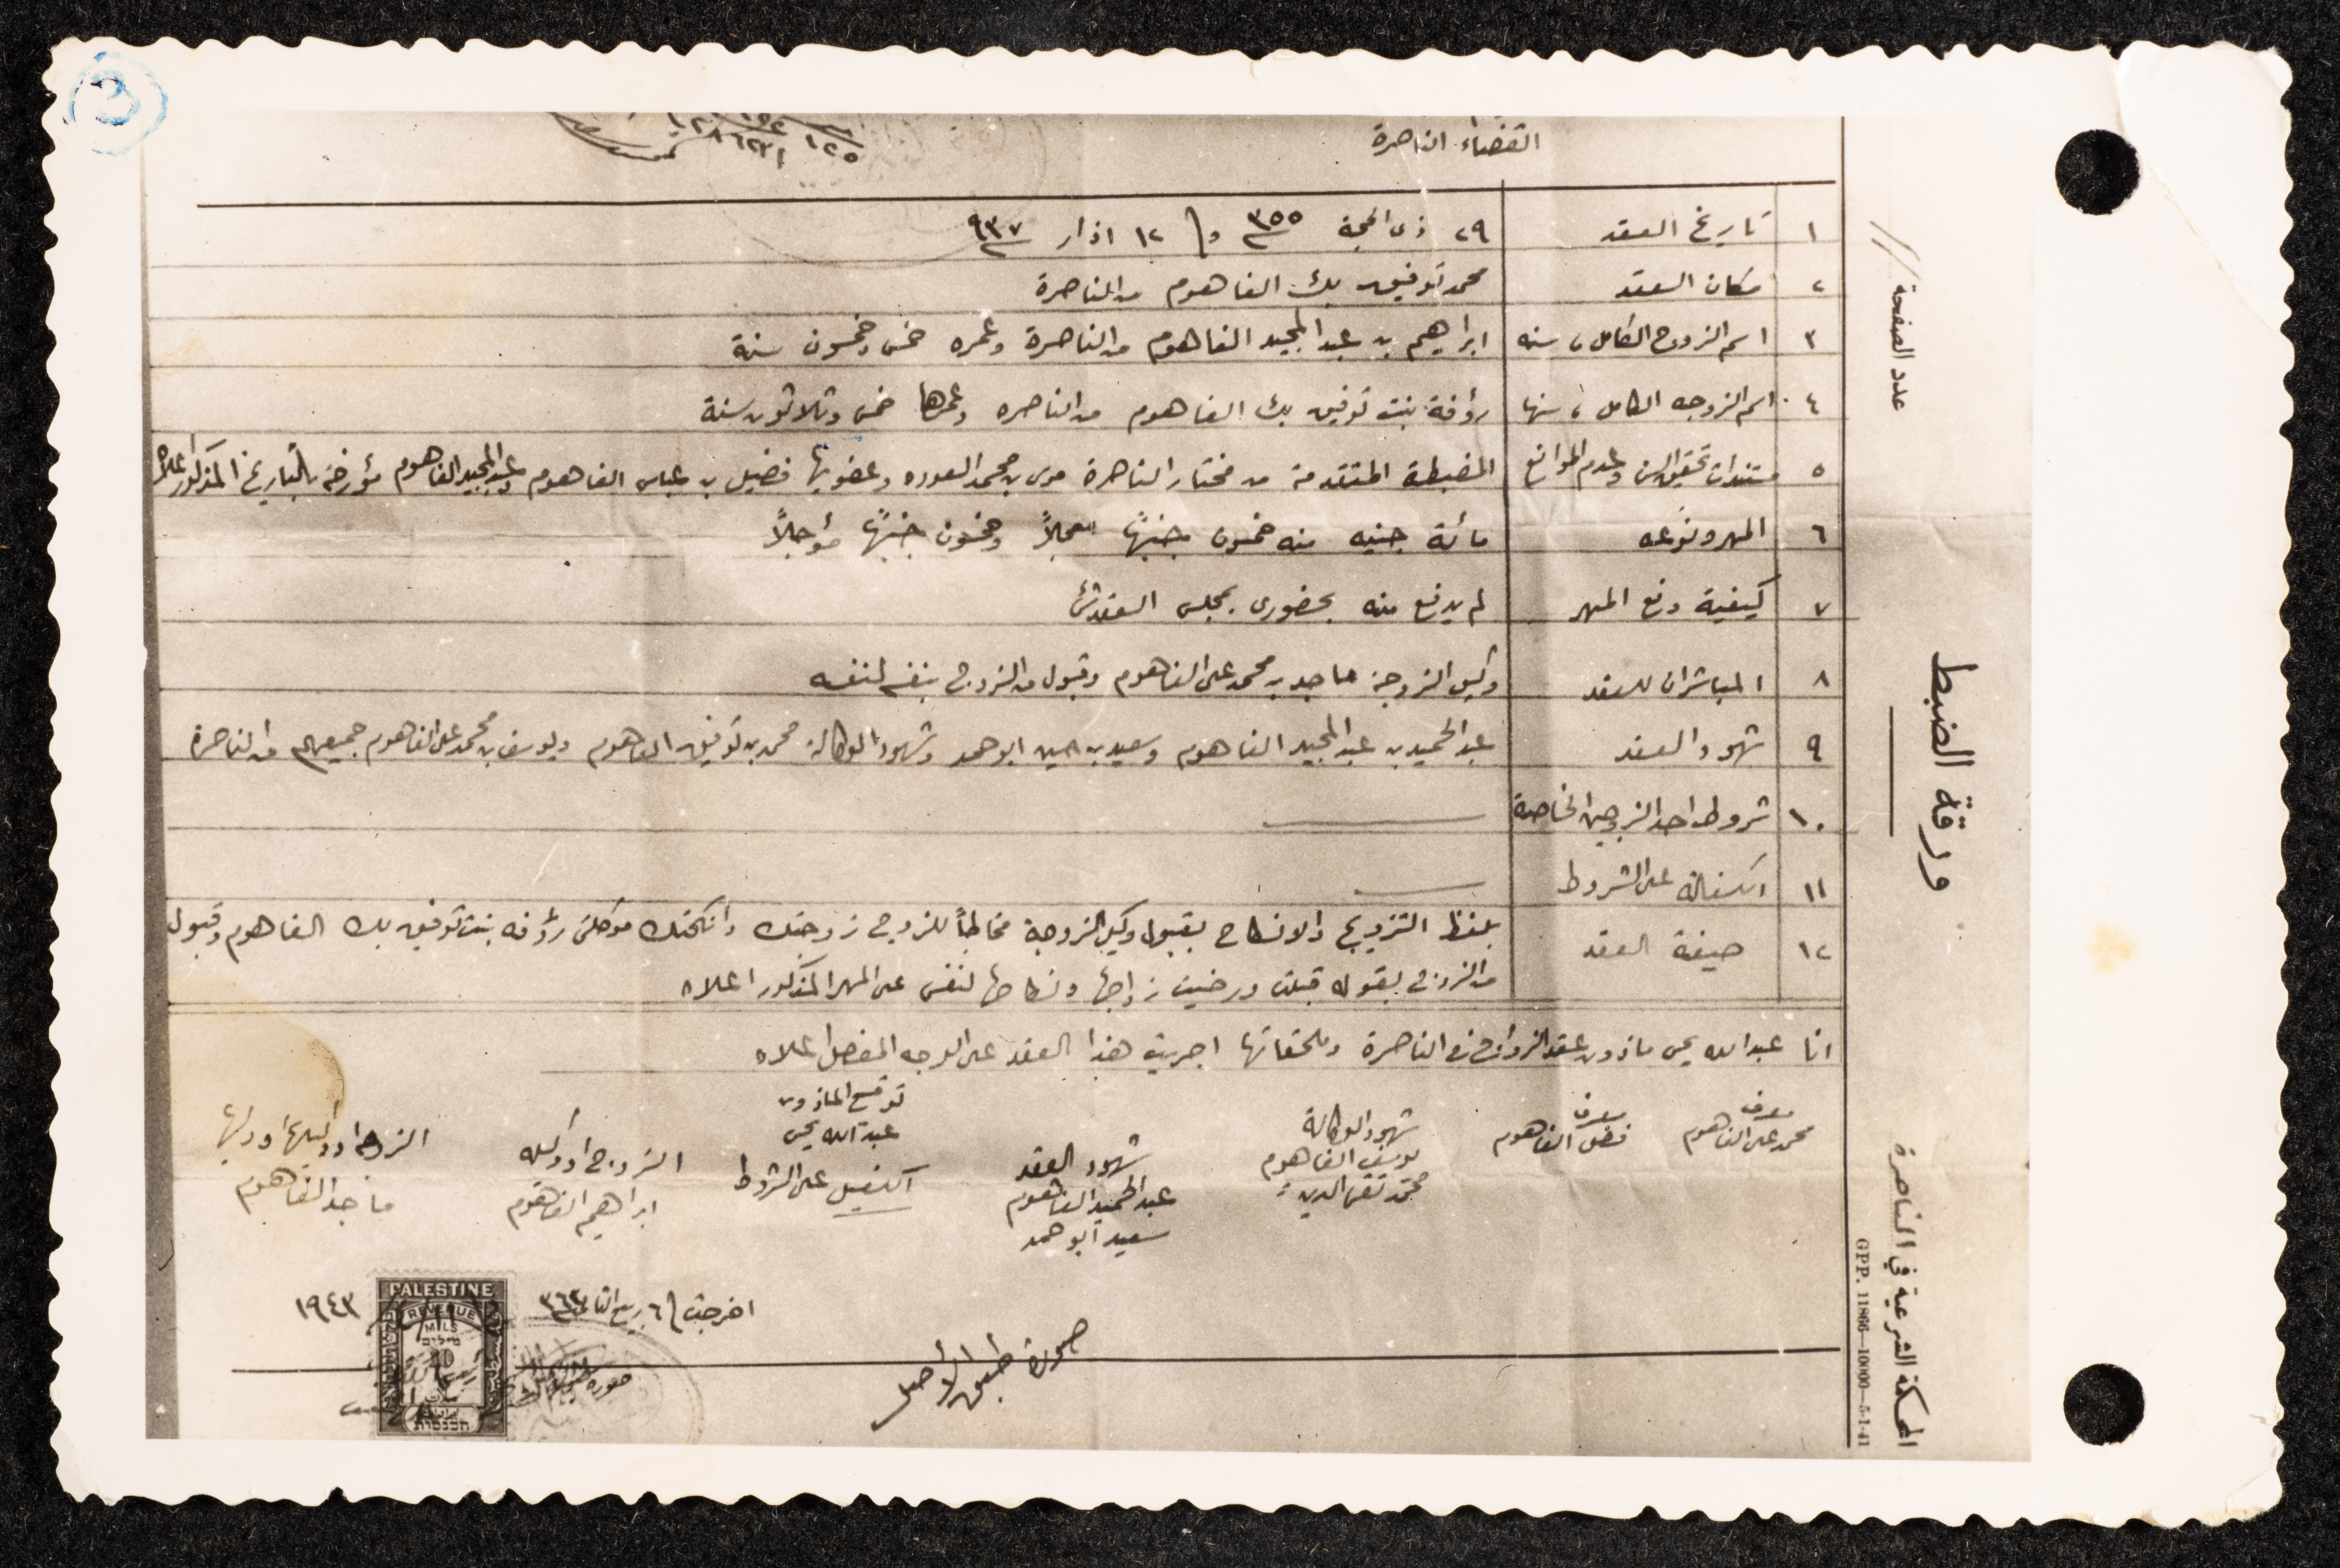 3
القضاء الناصرة
١ تاريخ العقد ٢٩ ذى الحجة ٣٥٥ و ١٢ اذار ٩٣٧
٢ مكان العقد محمد توفيق بك الفاهوم من الناصرة
٣ اسم الزوج الكامل، سنه ابراهيم بن عبد المجيد الفاهوم من الناصرة وعمره خمس وخمسون سنة
٤ اسم الزوجه الكامل، سنها رؤفة بنت توفيق بك الفاهوم من الناصره وعمرها خمس وثلاثون سنة
٥ مستندات تحقيق السن وعدم الموانع المضبطة المتقدمة من مختار الناصرة موسى بن محمد العوده وعضويها فضيل بن عباس الفاهوم وعبد المجيد الفاهوم مؤرخة بالتاريخ المذكور اعلاه
٦ المهر ونوعه مائة جنيه منه خمسون جنيهًا معجلاً وخمسون جنيهًا مؤجلاً
٧ كيفية دفع المهر لم يدفع منه بحضورى بمجلس العقد شئ
٨ المباشران للعقد وكيل الزوجة ماجد بن محمد على الفاهوم وقبول من الزوج بنفسه لنفسه
٩ شهود العقد عبد الحميد بن عبد المجيد الفاهوم وسعيد بن امين ابو حمد وشهود الوكالة محمد بن توفيق الفاهوم ويوسف بن محمد على الفاهوم جميعهم من الناصرة
١٠ شروط احد الزوجين الخاصة
١١ الكفالة على الشروط
١٢ صيغة العقد بلفظ التزويج والانكاح بقبول وكيل الزوجة مخاطبًا للزوج زوجتك وانكحتك موكلتى رؤفه بنت توفيق بك الفاهوم وقبول
من الزوج بقوله قبلت ورضيت زواجها ونكاحها لنفسى على المهر المذكور اعلاه
انا عبد الله يحيى ماذون عقد الزواج فى الناصرة وملحقاتها اجريت هذا العقد على الوجه المفصل اعلاه
معرف
محمد على الفاهوم
معرف
فضل الفاهوم
شهود الوكالة
يوسف الفاهوم
محمد تقى الدين
شهود العقد
عبد الحميد الفاهوم
سعيد ابو حمد
توقيع الماذون
عبد الله يحيى
الكفيل على الشروط
الزوج او وكيله
ابراهيم الفاهوم
الزوجة او وكيلها او وليها
ماجد الفاهوم
اخرجت ٦ ربيع الثانى ٣٦٢
١٩٤٣
صورة طبق الأصل
PALESTINE
REVENUE
MILS
عدد الصفحة
ورقة الضبط
المحكمة الشرعية في الناصرة
GPP. 11866—10000—5-1-41